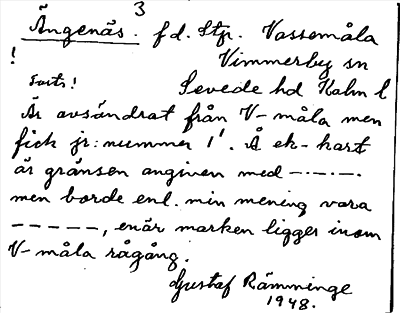 3
Ängenäs. fd. Stp. Vassemåla
! Vimmerby sn
Forts! Sevede hd Kalm l
Är avsöndrat från V-måla men
fick jr: nummer 1¹. Å ek-kart
är gränsen angiven med —·—·—·
men borde enl. min mening vara
-----, enär marken ligger inom
V-måla rågång.
Gustaf Rämminge
1948.